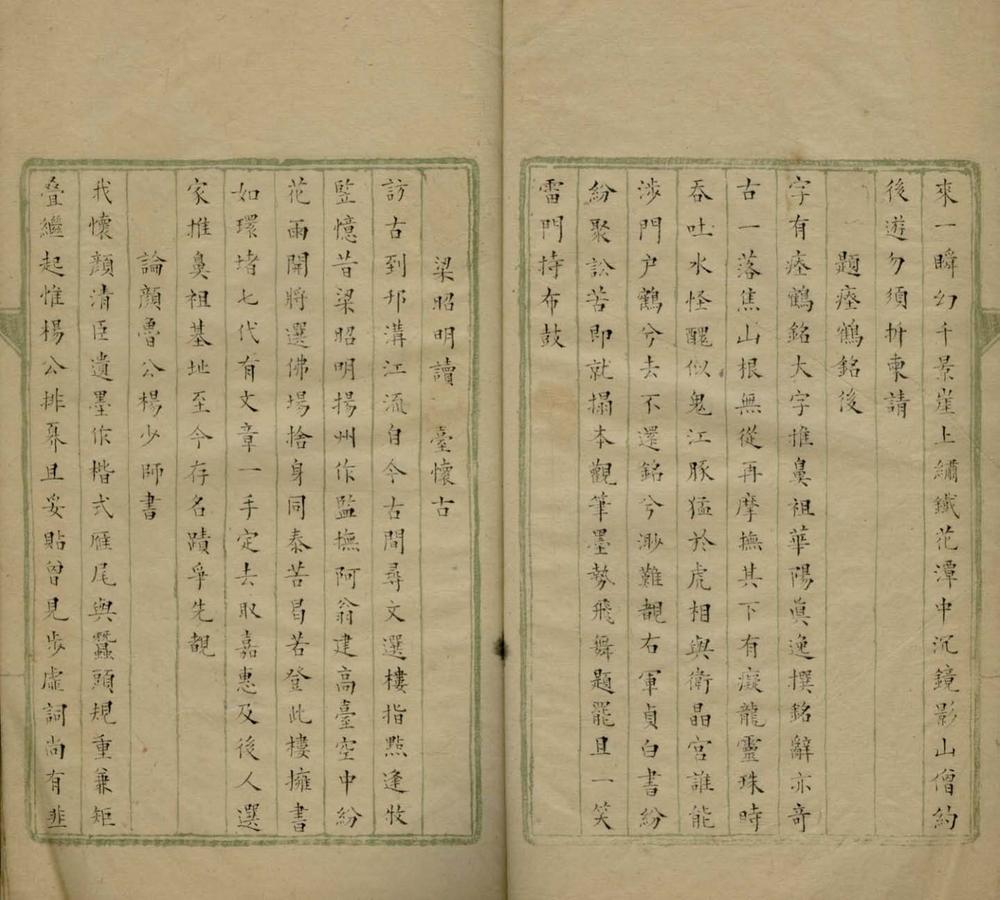 來一瞬幻千景崖上繡鐵花潭中沉鏡影山僧約
後遊勿須折柬請
題瘞鶴銘後
字有瘞鶴銘大字推鼻祖華陽真逸撰銘辭亦奇
古一落焦山根無從再摩撫其下有癡龍靈珠時
吞吐水怪醜似鬼江豚猛於虎相與衛晶宮誰能
涉門户鶴兮去不還銘兮渺難覩右軍貞白書紛
紛聚訟苦即就搨本觀筆墨勢飛舞題罷且一笑
雷門持布鼓
梁昭明讀 臺懷古
訪古到邗溝江流自今古間尋文選樓指點逢牧
豎憶昔梁昭明揚州作監撫阿翁建高臺空中紛
花雨開將選佛場捨身同泰苦昌若登此樓擁書
如環堵七代有文章一手定去取嘉惠及後人選
家推鼻祖基址至今存名蹟爭先覩
論顏魯公楊少師書
我懷顏清臣遺墨作楷式雁尾與蠶頭規重兼矩
疊繼起惟楊公排奡且妥貼曾見步虛詞尚有韭